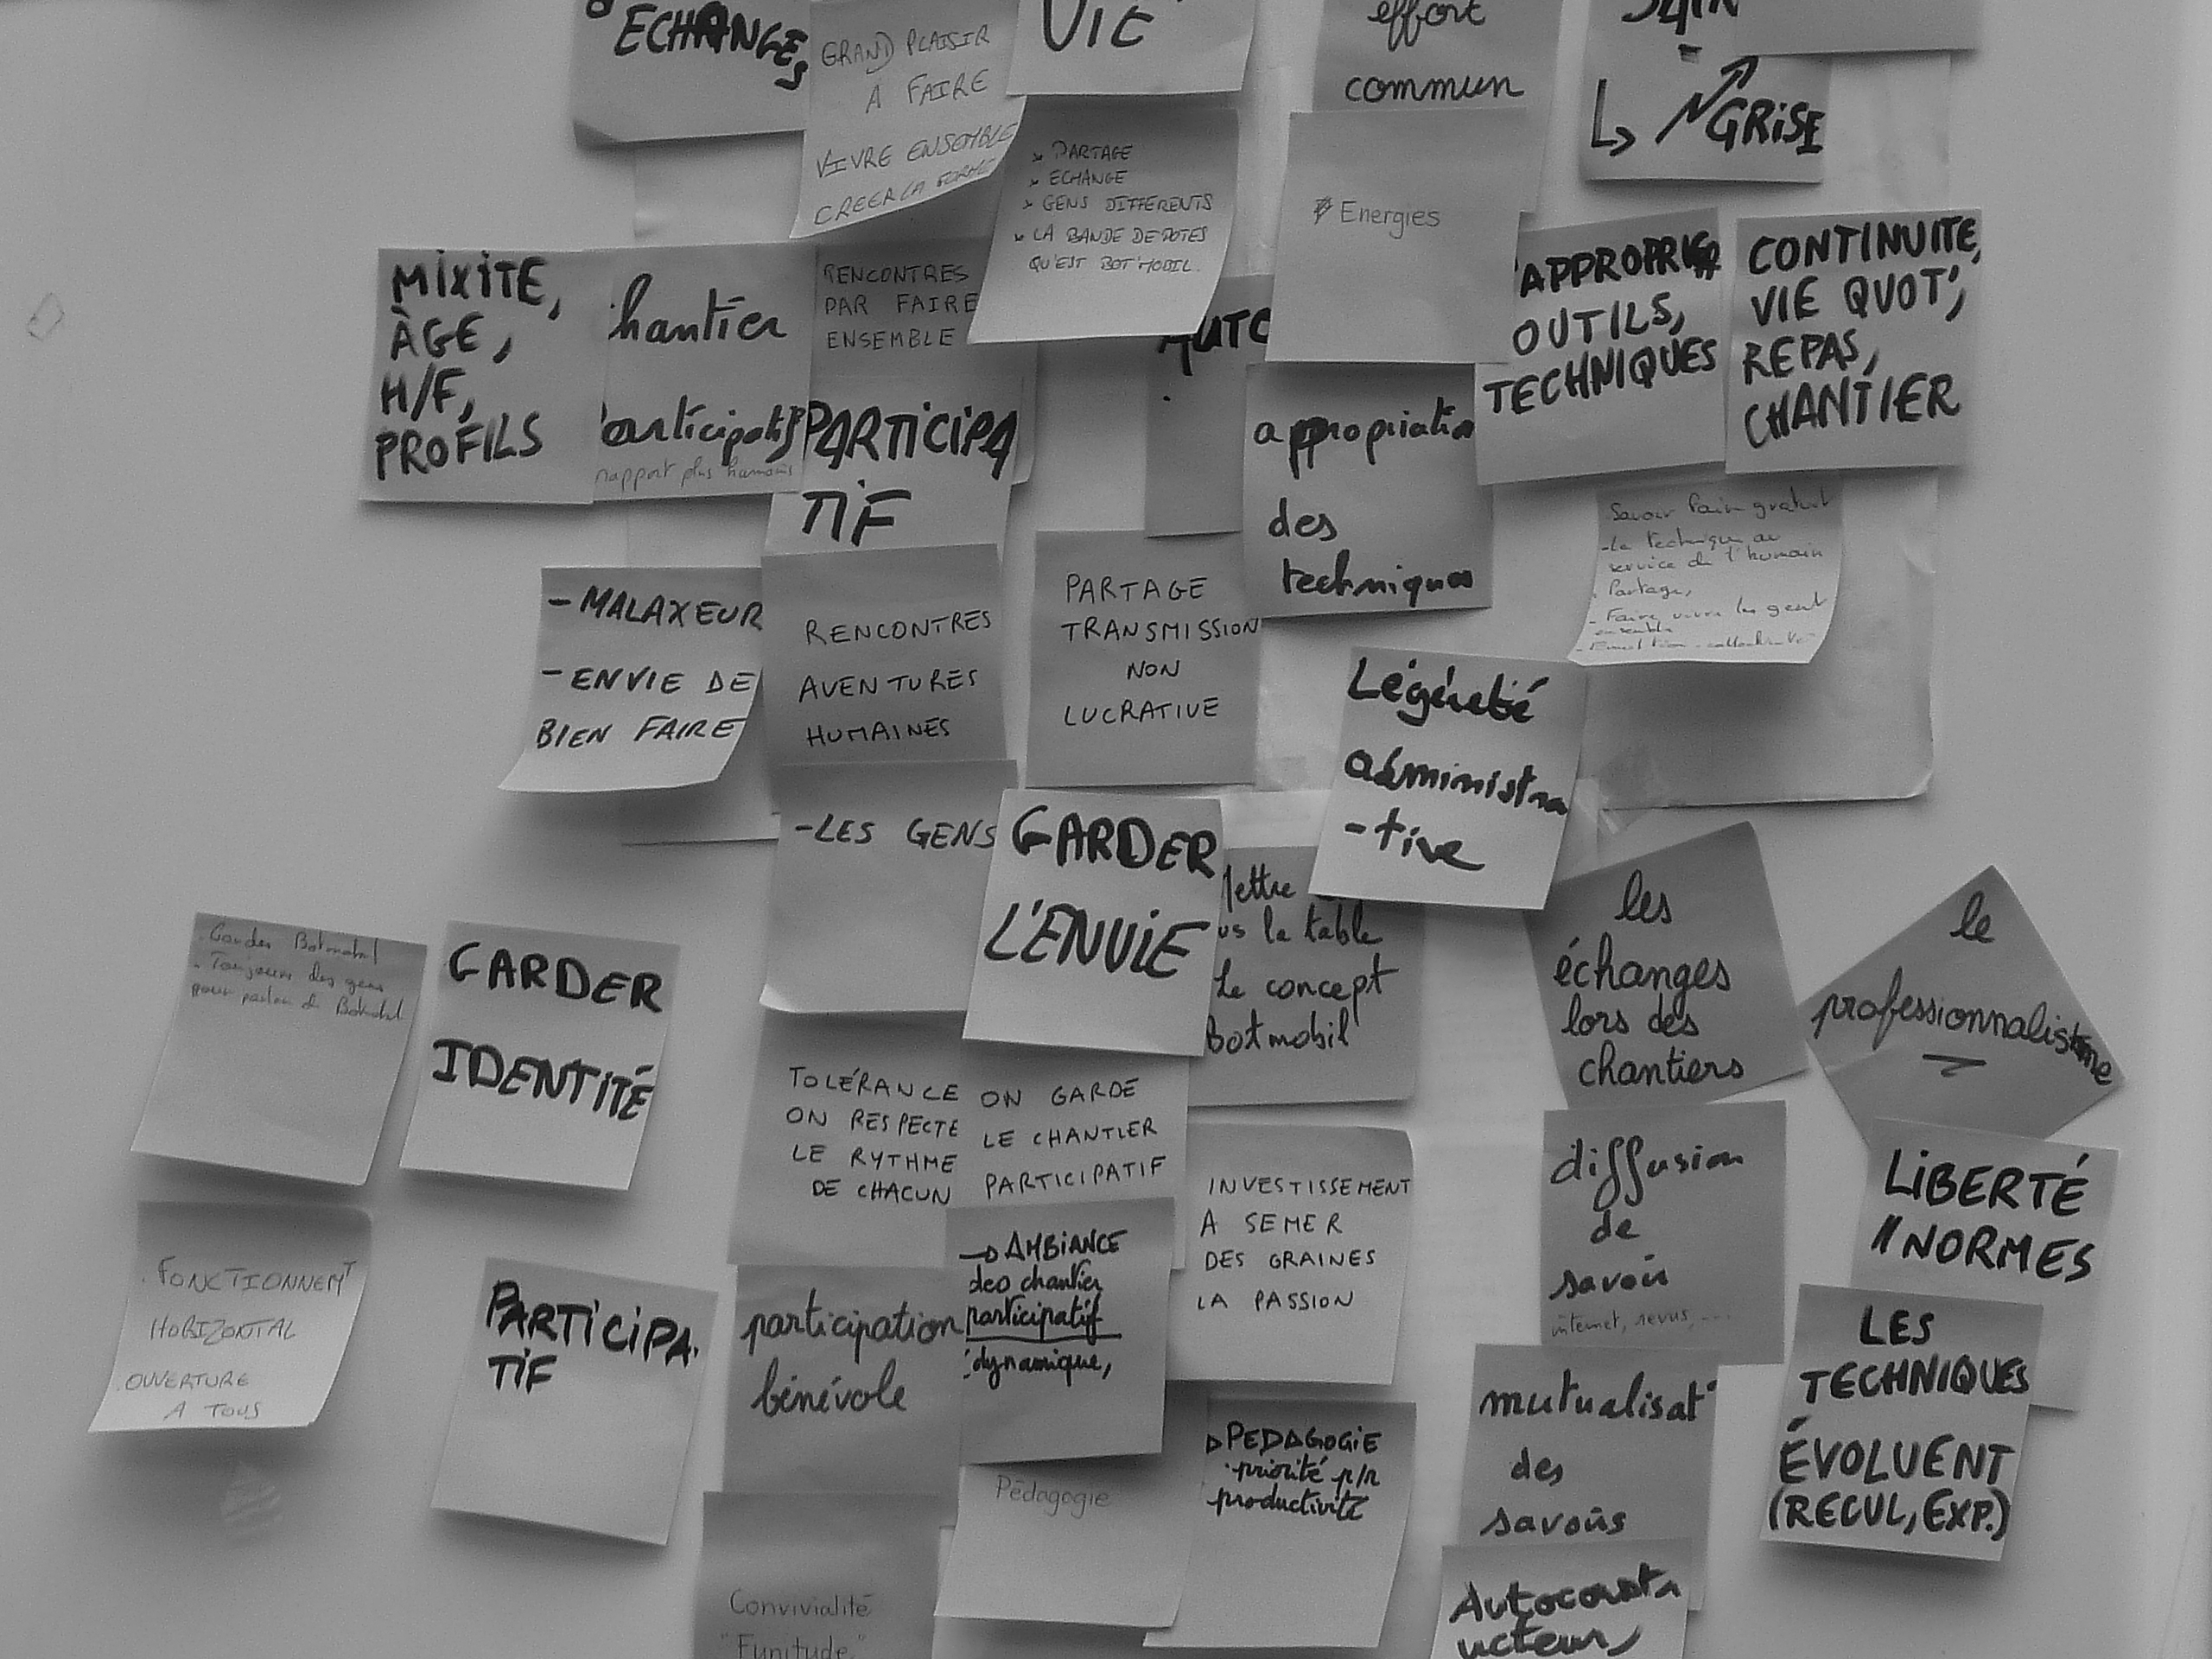 ECHANGES
GRAND PLAISIR
A FAIRE
VIVRE ENSEMBLE
CREER LA FORME
VIE
effort
commun
GRISE
PARTAGE
ECHANGE
GENS DIFFERENTS
LA BANDE DE POTES
QU'EST BOT'MOBIL.
Energies
MIXITE,
ÀGE,
H/F,
PROFILS
hantier
participatif
rapport plus humain
RENCONTRES
PAR FAIRE
ENSEMBLE
PARTICIPA
TiF
AUTO
appropriatio
des
techniques
OUTILS,
TECHNIQUES
CONTINUITE,
VIE QUOT',
REPAS,
CHANTIER
Savoir faire gratuit
- La technique au
service de l'humain
Partage,
- Faire vivre les gens
ensemble
- MALAXEUR
- ENVIE DE
BIEN FAIRE
RENCONTRES
AVENTURES
HUMAINES
PARTAGE
TRANSMISSION
NON
LUCRATIVE
Légèreté
administra
-tive
- LES GENS
GARDER
L'ENVIE
ettre
us la table
Le concept
Botmobil
les
échanges
lors des
chantiers
le
professionnalisme
. Garder Botmobil
. Toujours des gens
pour parler de Botmobil
GARDER
IDENTITÉ
TOLÉRANCE
ON RESPECTE
LE RYTHME
DE CHACUN
ON GARDE
LE CHANTIER
PARTICIPATIF
INVESTISSEMENT
A SEMER
DES GRAINES
LA PASSION
diffusion
de
savoir
internet, revus, ...
LIBERTÉ
// NORMES
. FONCTIONNEMT
HORIZONTAL
. OUVERTURE
A TOUS
PARTICIPA.
TiF
participation
bénévole
→ AMBIANCE
des chantier
participatif
dynamique,
Pédagogie
PEDAGOGIE
priorité p/r
productivité
mutualisat°
des
savoirs
LES
TECHNIQUES
ÉVOLUENT
(RECUL, EXP.)
Convivialité
"Funitude"
Autoconstr
ucteur,